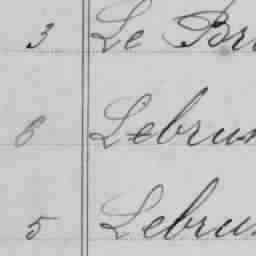 3 Le Br
6 Lebrun
5 Lebru